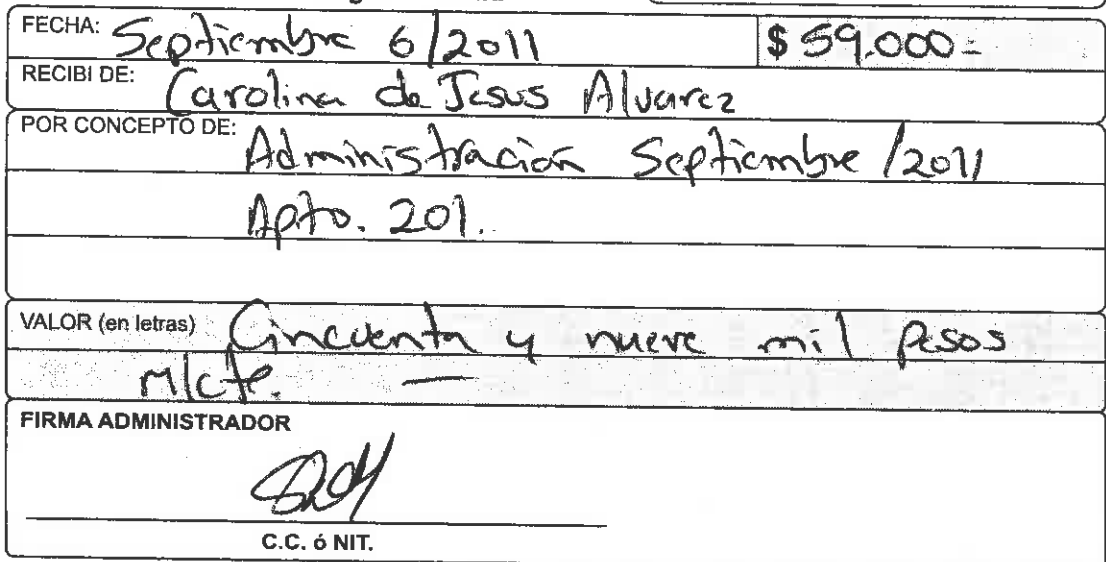 FECHA: Septiembre 6/2011 $ 59.000=
RECIBI DE: Carolina de Jesus Alvarez
POR CONCEPTO DE: Administración Septiembre /2011
Apto. 201.
VALOR (en letras) Cincuenta y nueve mil pesos
M/cte. —
FIRMA ADMINISTRADOR
C.C. ó NIT.